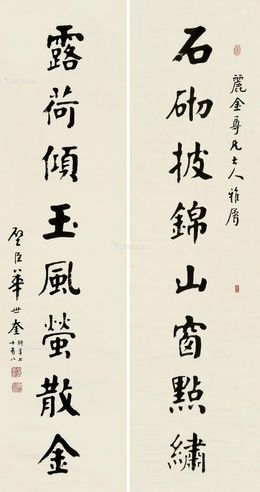 麗金尊兄大人雅屬
石砌披錦山窗點繡
露荷傾玉風螢散金
璧臣華世奎
時年七十有八